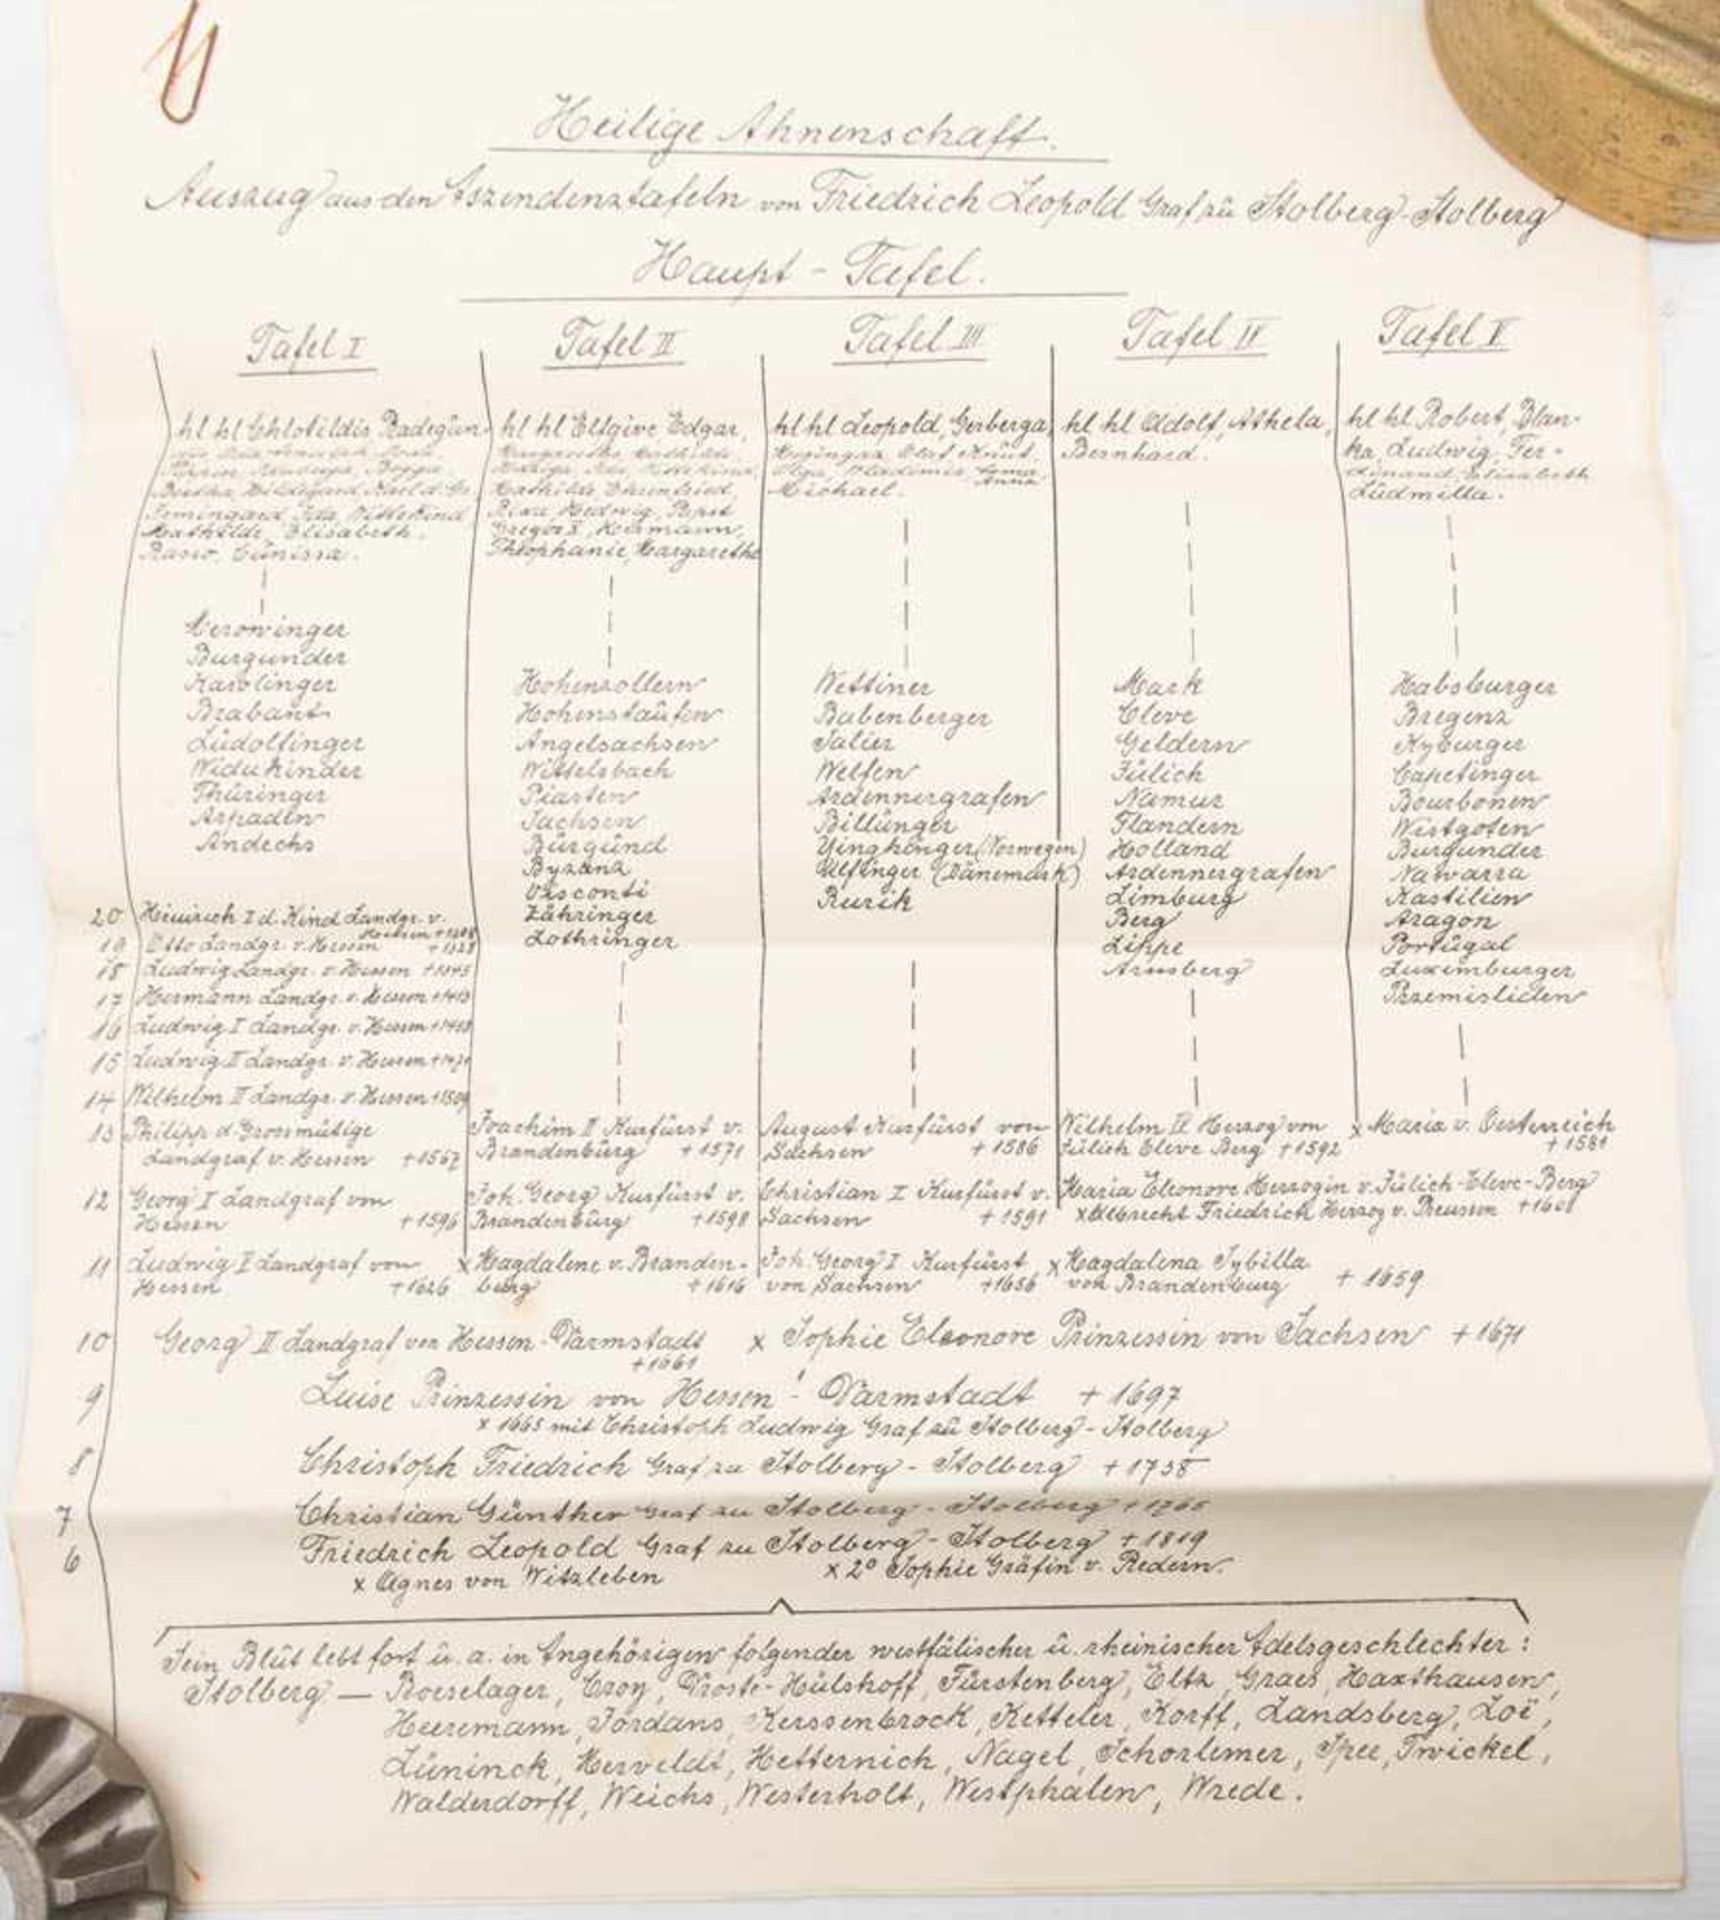 Heilige Ahnenschaft.
Auszug aus den Aszendenztafeln von Friedrich Leopold Graf zu Stolberg-Stolberg
Haupt-Tafel.
Tafel I
hl hl Chlotildis Radegun-
Bertha, Hildegard, Karl d. Gr.
Irmingard Ida Wittekind
Mathilde, Elisabeth,
Rasso. Cunissa.
Merowinger
Burgunder
Karolinger
Brabant
Lüdolfinger
Widukinder
Thüringer
Arpaden
Andechs
Tafel II
hl hl Elfgive Edgar,
Mathilde Ehrenfried,
Rixa Hedwig, Papst
Gregor X, Hermann,
Theophanie, Margarethe
Hohenzollern
Hohenstaufen
Angelsachsen
Wittelsbach
Piasten
Sachsen
Burgund
Byzanz
Visconti
Zähringer
Lothringer
Tafel III
hl hl Leopold, Gerberga,
Olaf Knut
Olga, Vladimir
Anna
Michael.
Wettiner
Babenberger
Salier
Welfen
Ardennergrafen
Billunger
Ynglinger (Norwegen)
Ulfinger (Dänemark)
Rurik
Tafel IV
hl hl Adolf, Athela,
Bernhard.
Mark
Cleve
Geldern
Jülich
Namur
Flandern
Holland
Ardennergrafen
Limburg
Berg
Lippe
Arnsberg
Tafel V
hl hl Robert, Blan-
ka, Ludwig, Fer-
dinand Elisabeth
Ludmilla.
Habsburger
Bregenz
Kyburger
Capetinger
Bourbonen
Westgoten
Burgunder
Nawarra
Kastilien
Aragon
Portugal
Luxemburger
Przemisliden
20 Heinrich I d. Kind Landgr. v.
Hessen +1308
19 Otto Landgr. v. Hessen +1328
18 Ludwig Landgr. v. Hessen +1345
17 Hermann Landgr. v. Hessen +1413
16 Ludwig I Landgr. v. Hessen +1458
15 Ludwig II Landgr. v. Hessen +1471
14 Wilhelm II Landgr. v. Hessen +1509
13 Philipp d. Grossmütige
Landgraf v. Hessen +1567
Joachim II Kurfürst v.
Brandenburg +1571
August Kurfürst von
Sachsen +1586
Wilhelm IV Herzog von
Jülich Cleve Berg +1592
x Maria v. Oesterreich
+1581
12 Georg I Landgraf von
Hessen +1596
Joh. Georg Kurfürst v.
Brandenburg +1598
Christian I Kurfürst v.
Sachsen +1591
Maria Eleonore Herzogin v. Jülich-Cleve-Berg
x Albrecht Friedrich Herzog v. Preussen +1608
11 Ludwig I Landgraf von
Hessen +1626
x Magdalene v. Branden-
burg +1616
Joh. Georg I Kurfürst
von Sachsen +1656
x Magdalena Sybilla
von Brandenburg +1659
10 Georg II Landgraf von Hessen-Darmstadt x Sophie Eleonore Prinzessin von Sachsen +1671
+1661
9 Luise Prinzessin von Hessen-Darmstadt +1697
x 1665 mit Christoph Ludwig Graf zu Stolberg-Stolberg
8 Christoph Friedrich Graf zu Stolberg-Stolberg +1738
7 Christian Günther Graf zu Stolberg-Stolberg +1765
6 Friedrich Leopold Graf zu Stolberg-Stolberg +1819
x Agnes von Witzleben x 2° Sophie Gräfin v. Redern.
Sein Blut lebt fort u. a. in Angehörigen folgender westfälischer u. rheinischer Adelsgeschlechter:
Stolberg — Boeselager, Croy, Droste-Hülshoff, Fürstenberg, Eltz, Graes, Haxthausen,
Heeremann, Jordans, Kerssenbrock, Ketteler, Korff, Landsberg, Loë,
Lüninck, Merveldt, Metternich, Nagel, Schorlemer, Spee, Twickel,
Walderdorff, Weichs, Westerholt, Westphalen, Wrede.